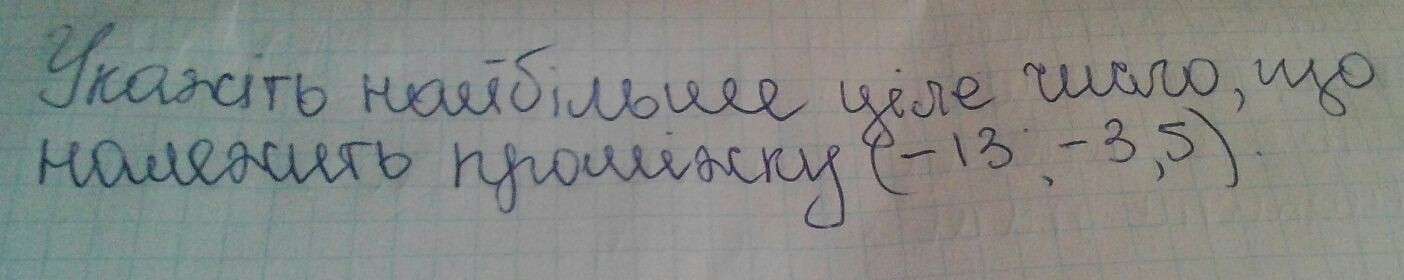 Укажіть найбільше ціле число, що
належить проміжку (-13 ; -3,5).